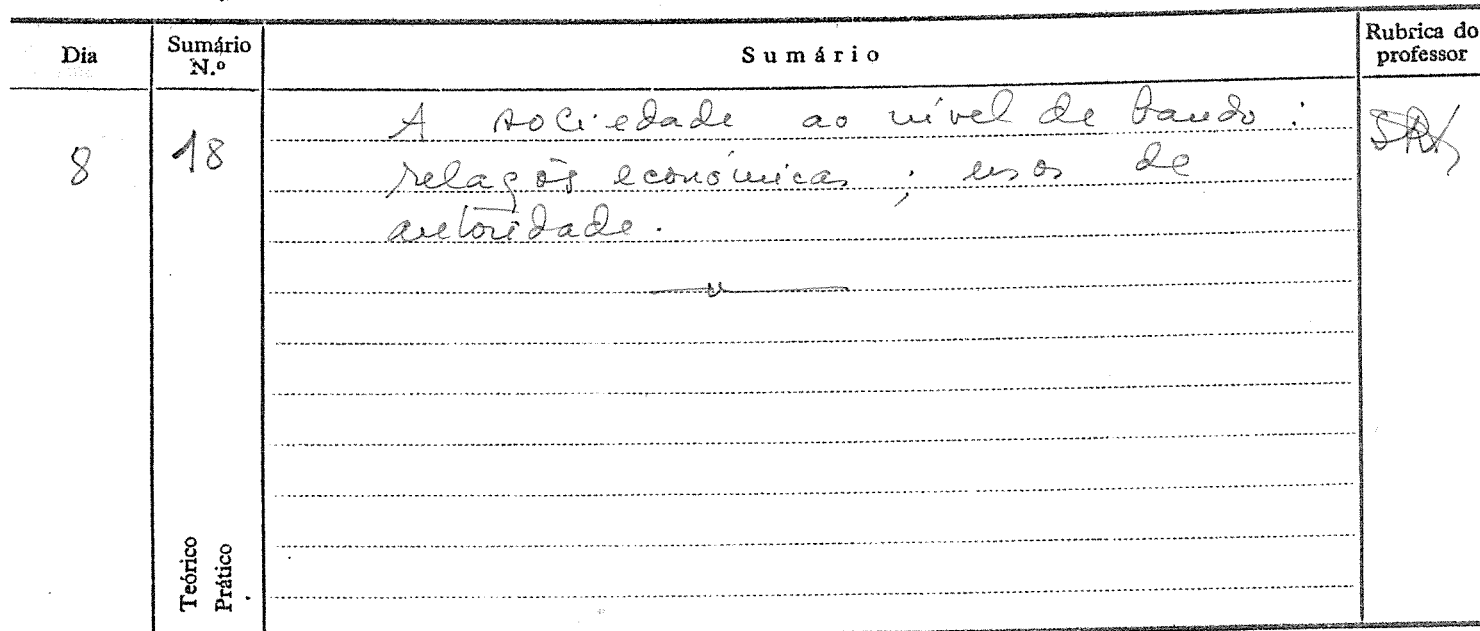 Dia
Sumário N.º
Sumário
Rubrica do professor
8
18
A sociedade ao nível de bando:
relações económicas; usos de
autoridade.
Teórico
Prático